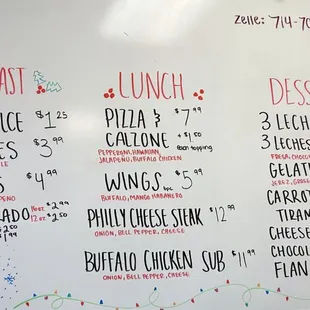 Zelle: 714-70
AST
LICE $1.25
ES $3.99
LE
S $4.99
PEÑO
LADO 16oz. $2.99
12oz. $2.50
LUNCH
PIZZA & $7.99
CALZONE + $1.50
each topping
PEPPERONI, HAWAIIAN,
JALAPEÑO, BUFFALO CHICKEN
WINGS 6pc $5.99
BUFFALO, MANGO HABANERO
PHILLY CHEESE STEAK $12.99
ONION, BELL PEPPER, CHEESE
BUFFALO CHICKEN SUB $11.99
ONION, BELL PEPPER, CHEESE
DESS
3 LECH
3 LECHES
FRESA, CHOCOL
GELAT
JEREZ, GROSE
CARROT
TIRAM
CHEESE
CHOCOL
FLAN